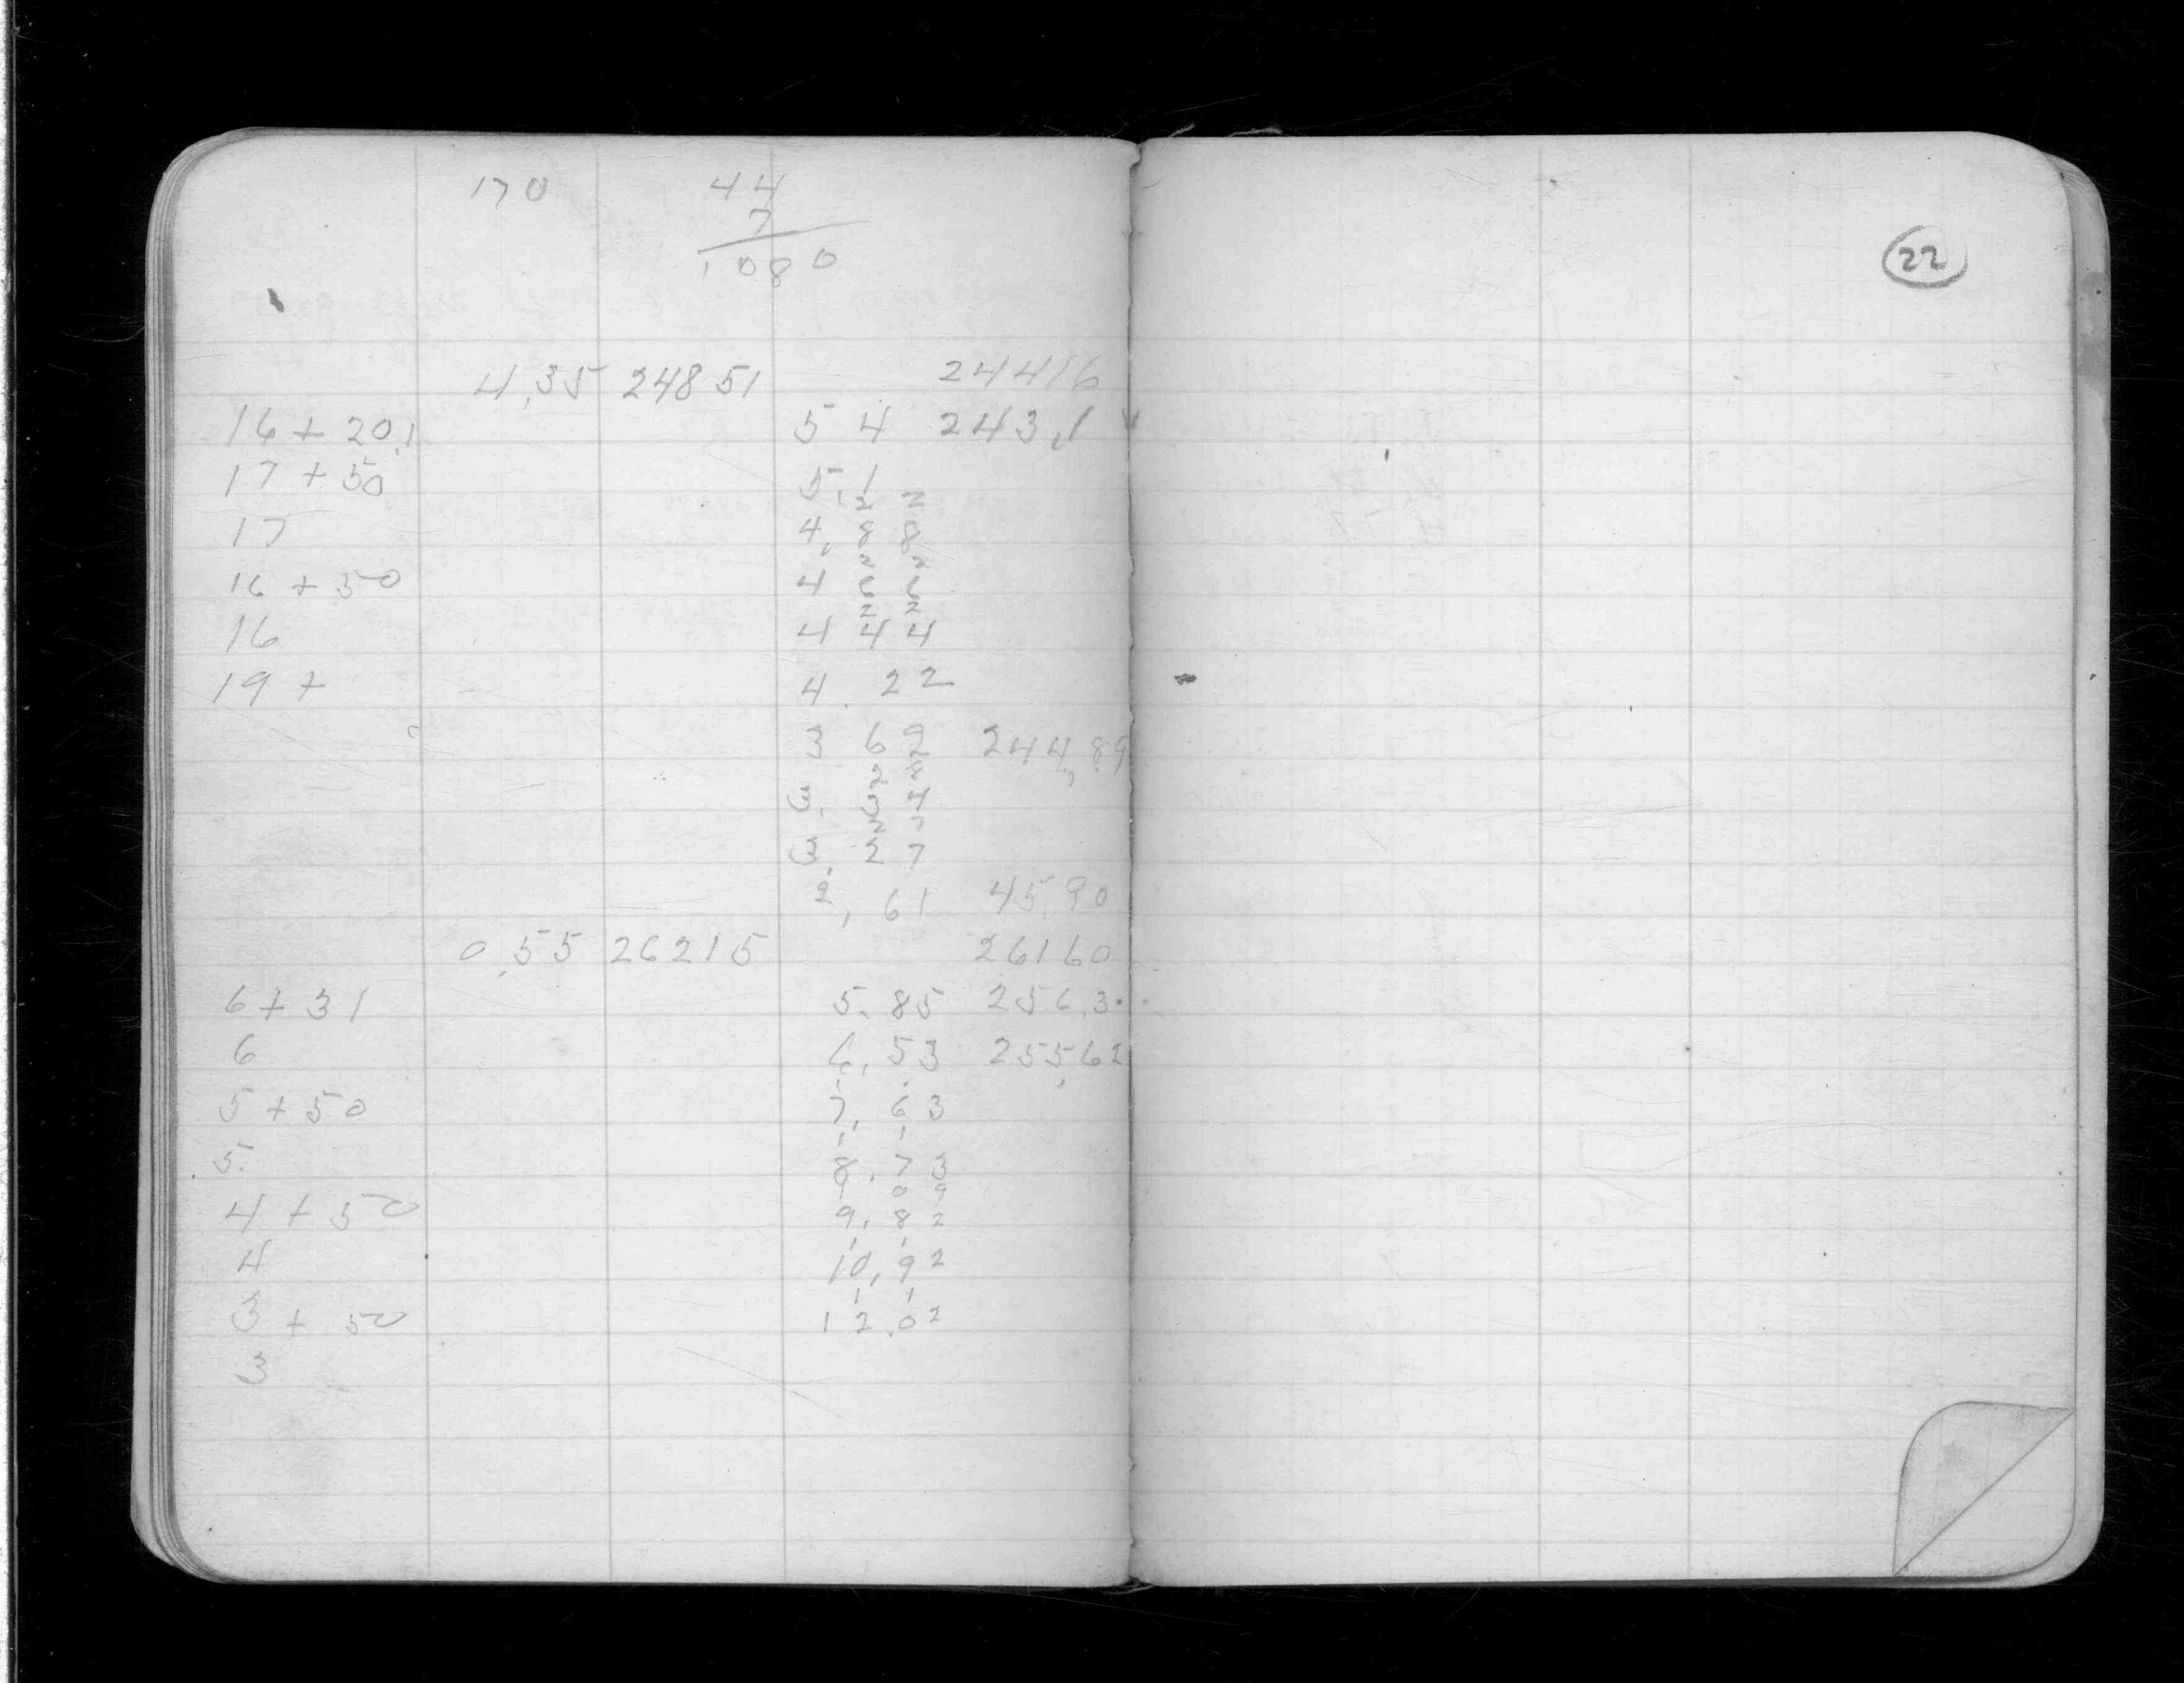 170 44
7
1080
4.35 24851 24416
16 + 20.1 5 4 243.1
17 + 50 5.1
2 2
17 4. 8 8
2 2
16 + 50 4 6 6
2 2
16 4 4 4
19 + 4 . 2 2
3 6 2 244.89
2
3. 3 4
7
3. 2 7
2. 61 45.90
0.55 26215 26160
6 + 31 5.85 256.3
6 6.53 255.62
1 1
5 + 50 7.63
1 1
5. 8.73
9 0 9
4 + 50 9.82
1 1
4 10.92
1 1
3 + 50 12.02
3
22